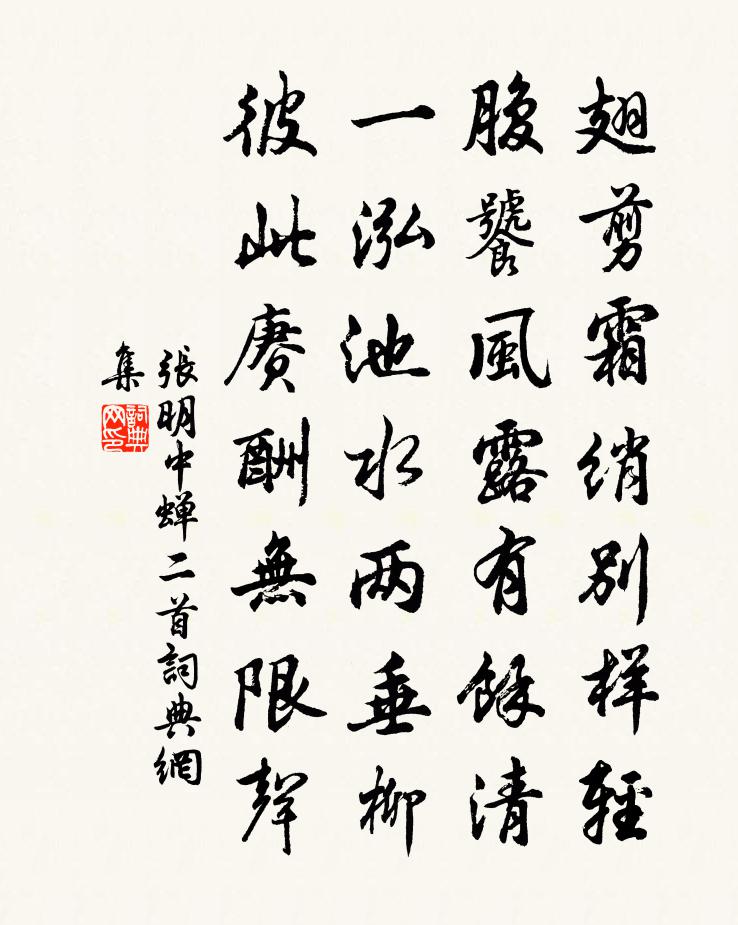 翅剪霜綃別樣輕
腹饕風露有餘清
一泓池水兩垂柳
彼此賡酬無限聲
張明中蝉二首詞典網
集
詞典网印